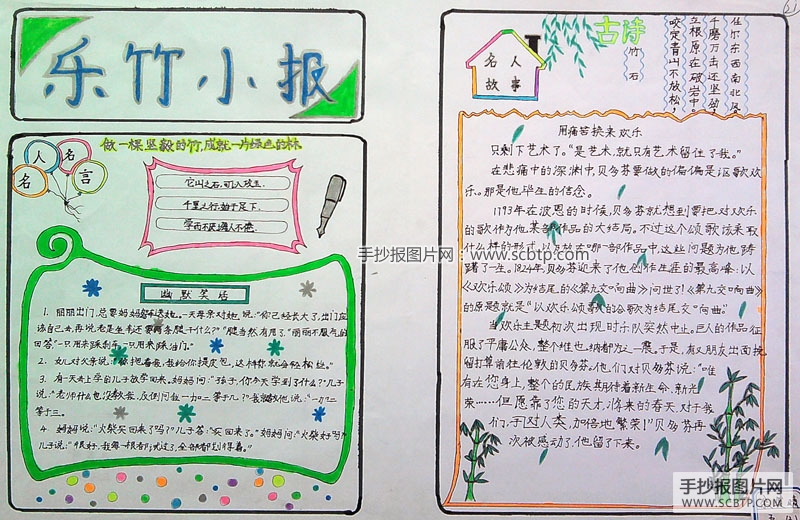 乐竹小报
做一棵坚毅的竹,成就一片绿色的林
名人名言
它山之石,可以攻玉.
千里之行,始于足下.
学而不厌,诲人不倦.
幽默笑话
1. 丽丽出门,总要妈妈
一天母亲对她说:“你已经长大了,出门应
该自己去,再说老是坐车还要
腿干什么?”“腿当然有用了.”丽丽不服气的
回答“一只用来踩刹车,一只用来踩油门.”
2. 女儿对父亲说:“你抱着我,我给你提皮包,这样你就会轻松些.”
3. 有一天去上学的儿子放学回来,妈妈问:“孩子,你今天学到了什么?”儿子
说:“老师什么也没教会,反倒问我一加二等于几?我就教他说:“一加二
等于三.
4. 妈妈说:“火柴买回来了吗?”儿子答:“买回来了.”妈妈问:“火柴好吗?”
儿子说:“很好,我每一根都试过了,全部都划得着.”
名人故事
古诗
竹石
咬定青山不放松,
立根原在破岩中。
千磨万击还坚劲,
任尔东西南北风
用痛苦换来欢乐
只剩下艺术了。“是艺术,就只有艺术留住了我。”
在悲痛中的深渊中,贝多芬要做的偏偏是讴歌欢
乐。那是他毕生的信念。
1793年在波恩的时候,贝多芬就想到要把对欢乐
的歌作为他某部作品的大结局。不过这个颂歌该采取
什么样的形式,以及放在哪一部作品中,这些问题为他踌
躇了一生。1824年,贝多芬迎来了他创作生涯的最高峰:以
《欢乐颂》为结尾的《第九交响曲》问世!《第九交响曲》
的原题就是“以欢乐颂歌的合歌为结尾交响曲”。
当欢乐主题初次出现时,乐队突然中止。巨人的作品征
服了平庸公众,整个维也纳都为之一震。于是,有朋友出面挽
留打算前往伦敦的贝多芬。他们对贝多芬说:“唯
有在您身上,整个的民族期待着新生命,新光
荣……但愿靠了您的天才,将来的春天,对于我
们,于人类,加倍地繁荣!”贝多芬再
次被感动了,他留了下来。
手抄报图片网:www.scbtp.com
手抄报图片网
WWW.SCBTP.COM